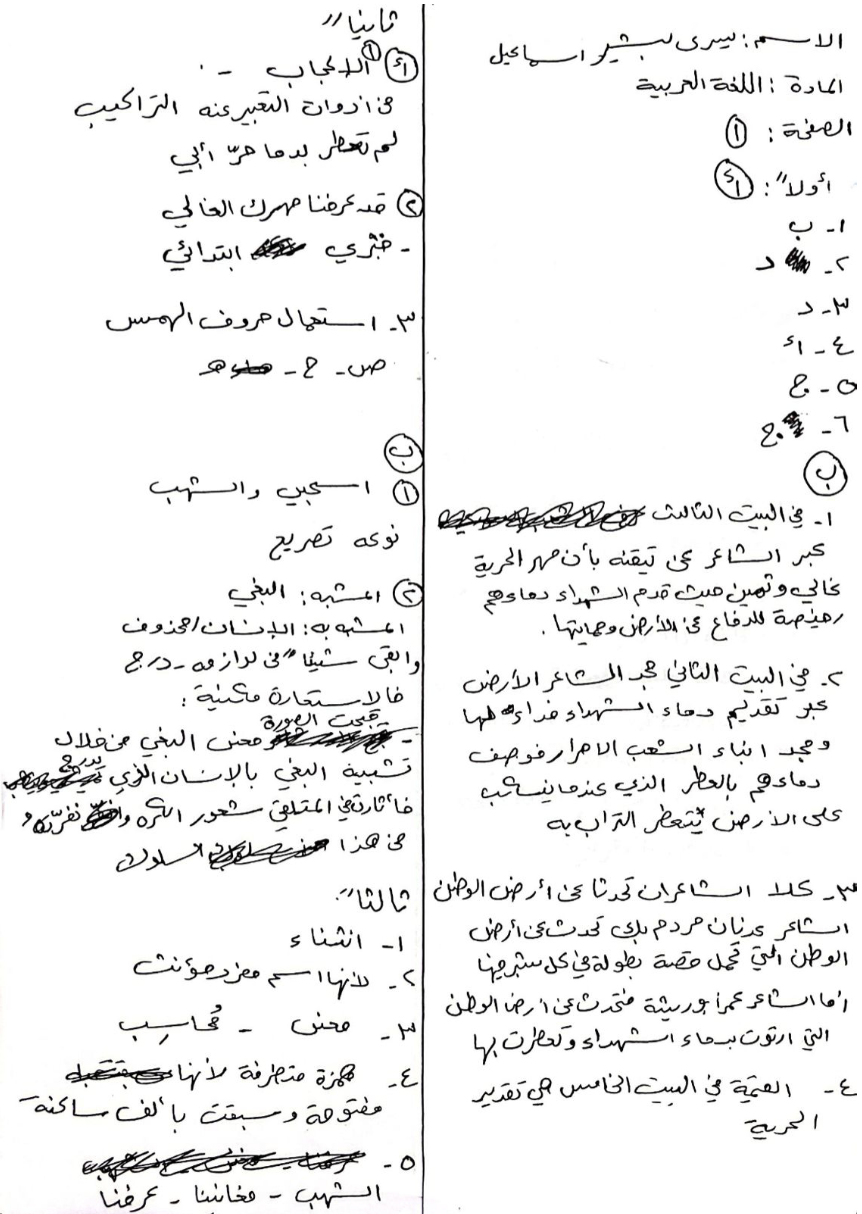 الاسم: يسرى بشير اسماعيل
المادة: اللغة العربية
الصفحة: ①
أولاً: أ
١- ب
٢- د
٣- د
٤- أ
٥- ج
٦- ج
ب
١- في البيت الثالث
عبر الشاعر عن تيقنه بأن مهر الحرية
غالي وثمين حيث قدم الشهداء دماءهم
رخيصة للدفاع عن الأرض وحمايتها.
٢- في البيت الثاني مجد الشاعر الأرض
عبر تقديم دماء الشهداء فداء لها
ومجد ابناء الشعب الاحرار فوصف
دماءهم بالعطر الذي عندما ينسكب
على الارض يتعطر التراب به
٣- كلا الشاعران تحدثا عن أرض الوطن
الشاعر عدنان مردم بك تحدث عن أرض
الوطن التي تحمل قصة بطولة في كل شبر فيها
أما الشاعر عمر أبو ريشة فتحدث عن ارض الوطن
التي ارتوت بدماء الشهداء وتعطرت بها
٤- القيمة في البيت الخامس هي تقدير
الحرية
ثانيا"
أ ① الاعجاب -
من ادوات التعبير عنه التراكيب
لم تعطر بدما حرّ أبي
② قد عرفنا مهرك الغالي
- خبري ابتدائي
٣- استعمال حروف الهمس
ص - ح - ه
ب
① اسحبي والشهب
نوعه تصريع
② المشبه: البغي
المشبه به: الإنسان/محذوف
وابقى شيئا" من لوازمه - درج
فالاستعارة مكنية:
- قبحت الصورة معنى البغي من خلال
تشبيه البغي بالإنسان الذي يدرج
فأثارت في المتلقي شعور الكره و نفرته
من هذا السلوك
ثالثا"
١- انشناء
٢- لأنها اسم مفرد مؤنث
٣- معنى - مُحاسِب
٤- همزة متطرفة لأنها
مفتوحة وسبقت بألف ساكنة
٥-
الشهب - مغانينا - عرفنا